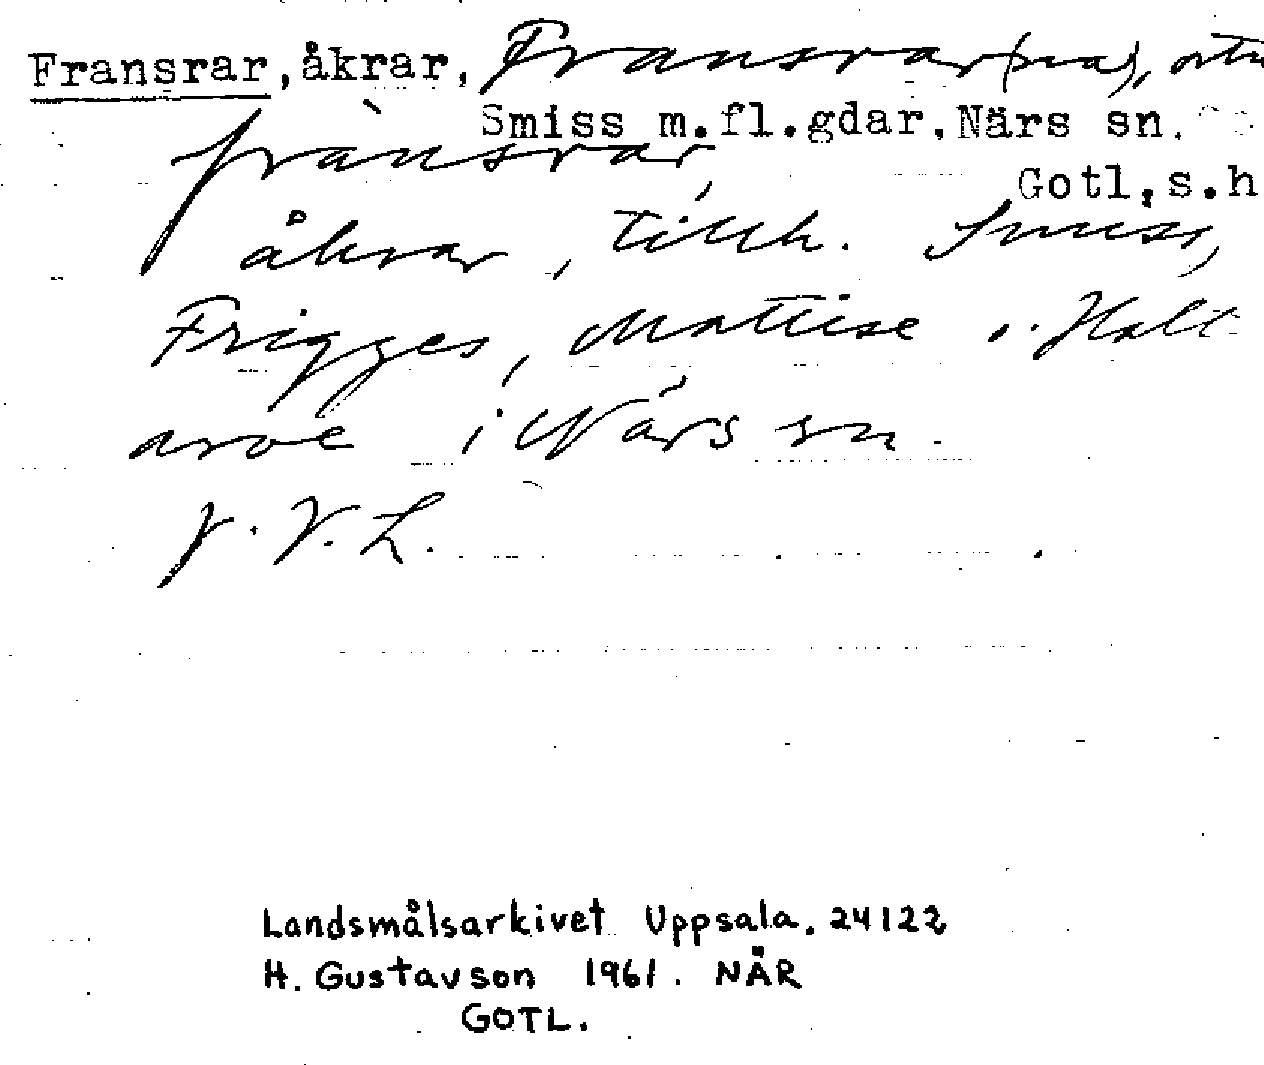 Fransrar, åkrar, Fransrar(na), ortn
Smiss m.fl.gdar, Närs sn.
frànsrar,
Gotl,s.h
åkrar, tillh. Smiss,
Frigges, Mattise o. Hall-
arve i Närs sn.
J. V. L.
Landsmålsarkivet Uppsala. 24122
H. Gustavson 1961. NÄR
GOTL.